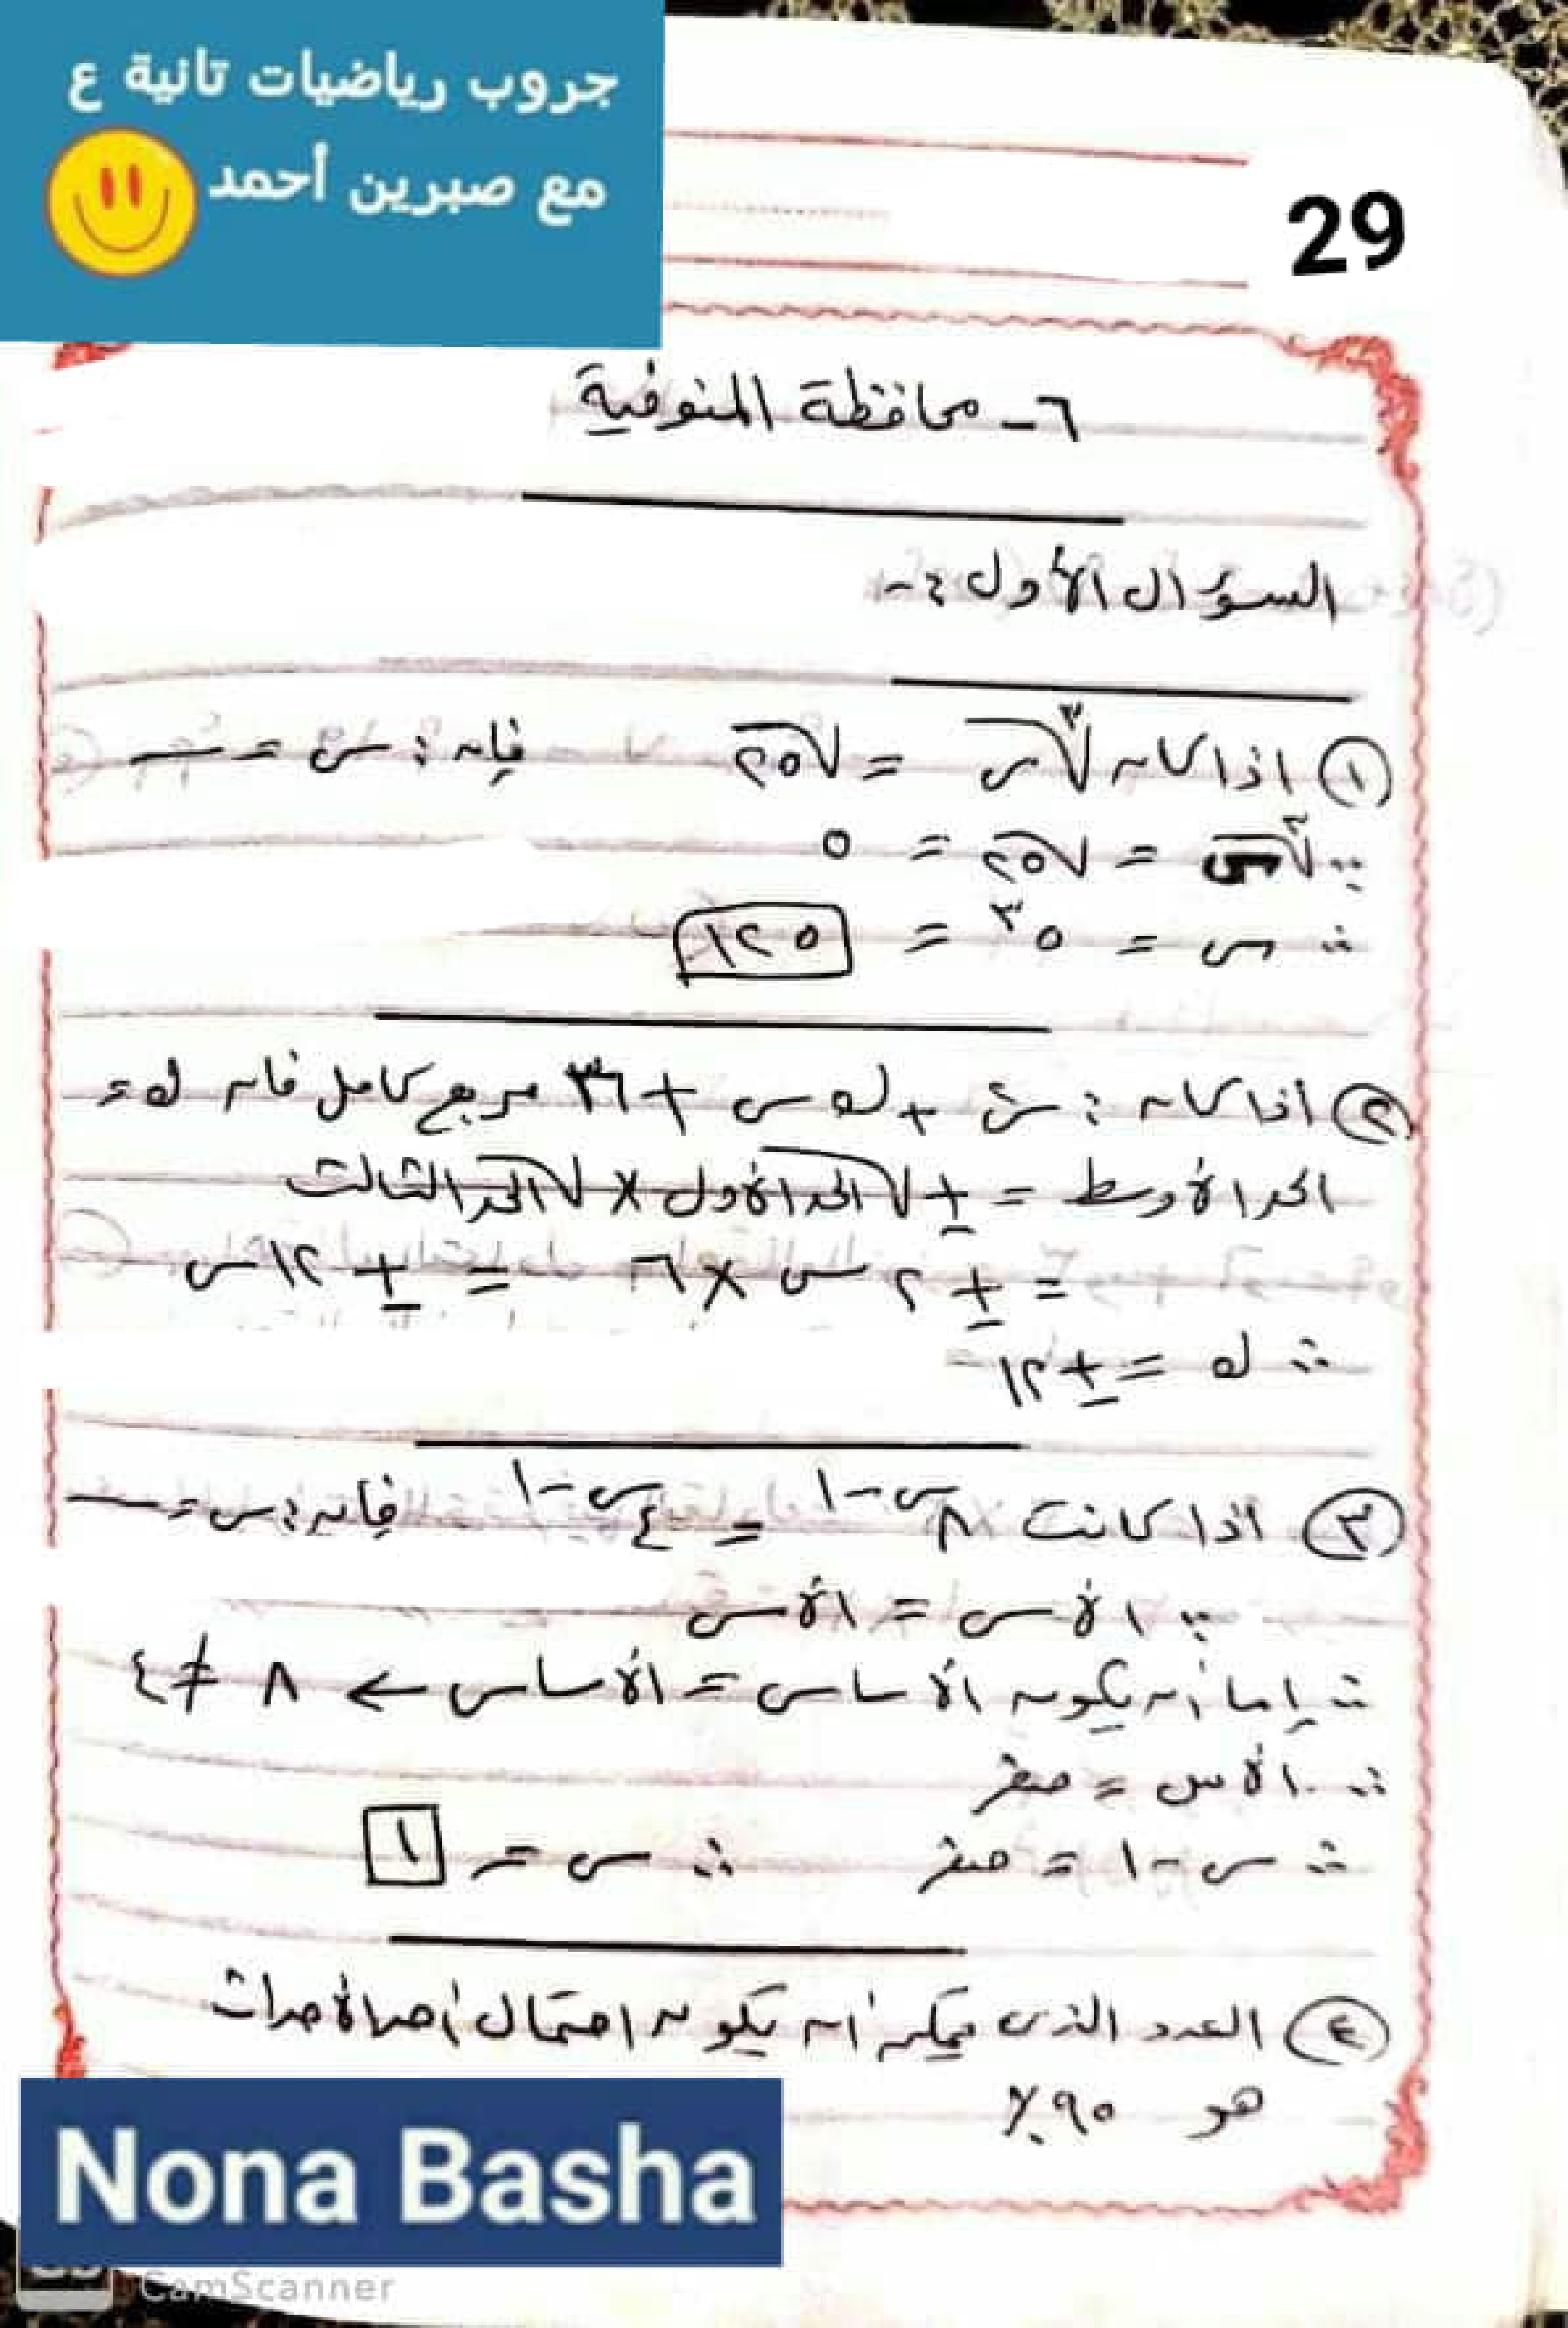 جروب رياضيات تانية ع
مع صبرين أحمد
29
٦- محافظة المنوفية
السؤال الأول :-
① اذا كان ∛س = √٢٥ فإن : س = ــــ
∵ ∛س = √٢٥ = ٥
∴ س = ٥³ = ١٢٥
② اذا كان : س² + ك س + ٣٦ مربع كامل فان ك =
الحد الأوسط = ± √الحد الأول × √الحد الثالث
= ± ٢ س × ٦ = ± ١٢ س
∴ ك = ± ١٢
③ اذا كانت ٨^(س-١) = ٤^(س-١) فإن : س = ــــ
∵ الأس = الأس
∴ إما أن يكون الأساس = الأساس ← ٨ ≠ ٤
∴ الأس = صفر
∴ س - ١ = صفر ∴ س = ١
④ العدد الذى يمكن أن يكون احتمال أحد الأحداث
هو ٩٠٪
Nona Basha
CamScanner